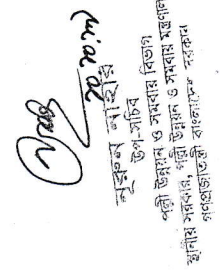 নুরুন নাহার
উপ-সচিব
পল্লী উন্নয়ন ও সমবায় বিভাগ
স্থানীয় সরকার, পল্লী উন্নয়ন ও সমবায় মন্ত্রণালয়
গণপ্রজাতন্ত্রী বাংলাদেশ সরকার